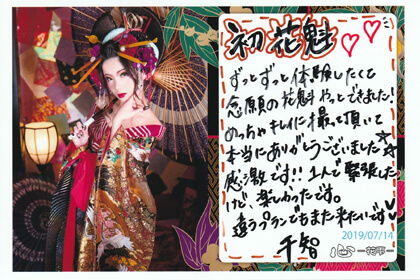 初花魁♡♡
ずっとずっと体験したくて
念願の花魁やっとできました!
めっちゃキレイに撮って頂いて
本当にありがとうございました☆
感激です!!1人で緊張した
けど、楽しかったです。
違うプランでもまた来たいです♥
2019/07/14
千智
心 -花雫-